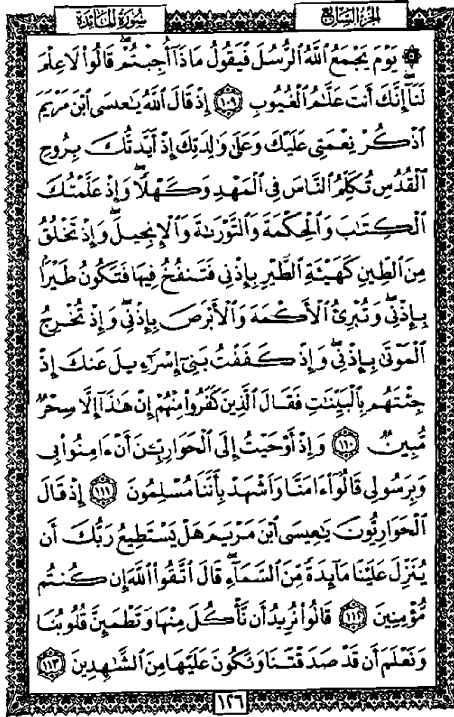 الجزء السابع
سورة المائدة
۞ يَوْمَ يَجْمَعُ ٱللَّهُ ٱلرُّسُلَ فَيَقُولُ مَاذَآ أُجِبْتُمْ ۖ قَالُوا۟ لَا عِلْمَ
لَنَآ ۖ إِنَّكَ أَنتَ عَلَّٰمُ ٱلْغُيُوبِ ١٠٩ إِذْ قَالَ ٱللَّهُ يَٰعِيسَى ٱبْنَ مَرْيَمَ
ٱذْكُرْ نِعْمَتِى عَلَيْكَ وَعَلَىٰ وَٰلِدَتِكَ إِذْ أَيَّدتُّكَ بِرُوحِ
ٱلْقُدُسِ تُكَلِّمُ ٱلنَّاسَ فِى ٱلْمَهْدِ وَكَهْلًا ۖ وَإِذْ عَلَّمْتُكَ
ٱلْكِتَٰبَ وَٱلْحِكْمَةَ وَٱلتَّوْرَىٰةَ وَٱلْإِنجِيلَ ۖ وَإِذْ تَخْلُقُ
مِنَ ٱلطِّينِ كَهَيْـَٔةِ ٱلطَّيْرِ بِإِذْنِى فَتَنفُخُ فِيهَا فَتَكُونُ طَيْرًۢا
بِإِذْنِى ۖ وَتُبْرِئُ ٱلْأَكْمَهَ وَٱلْأَبْرَصَ بِإِذْنِى ۖ وَإِذْ تُخْرِجُ
ٱلْمَوْتَىٰ بِإِذْنِى ۖ وَإِذْ كَفَفْتُ بَنِىٓ إِسْرَٰٓءِيلَ عَنكَ إِذْ
جِئْتَهُم بِٱلْبَيِّنَٰتِ فَقَالَ ٱلَّذِينَ كَفَرُوا۟ مِنْهُمْ إِنْ هَٰذَآ إِلَّا سِحْرٌ
مُّبِينٌ ١١٠ وَإِذْ أَوْحَيْتُ إِلَى ٱلْحَوَارِيِّـۧنَ أَنْ ءَامِنُوا۟ بِى
وَبِرَسُولِى قَالُوٓا۟ ءَامَنَّا وَٱشْهَدْ بِأَنَّنَا مُسْلِمُونَ ١١١ إِذْ قَالَ
ٱلْحَوَارِيُّونَ يَٰعِيسَى ٱبْنَ مَرْيَمَ هَلْ يَسْتَطِيعُ رَبُّكَ أَن
يُنَزِّلَ عَلَيْنَا مَآئِدَةً مِّنَ ٱلسَّمَآءِ ۖ قَالَ ٱتَّقُوا۟ ٱللَّهَ إِن كُنتُم
مُّؤْمِنِينَ ١١٢ قَالُوا۟ نُرِيدُ أَن نَّأْكُلَ مِنْهَا وَتَطْمَئِنَّ قُلُوبُنَا
وَنَعْلَمَ أَن قَدْ صَدَقْتَنَا وَنَكُونَ عَلَيْهَا مِنَ ٱلشَّٰهِدِينَ ١١٣
١٢٦